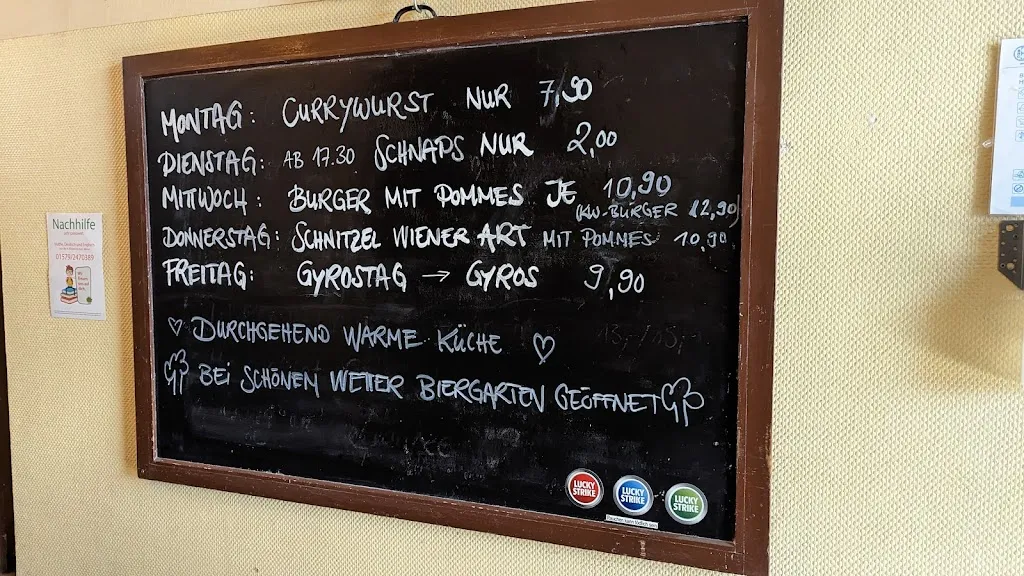 MONTAG: CURRYWURST NUR 7,90
DIENSTAG: AB 17.30 SCHNAPS NUR 2,00
MITTWOCH: BURGER MIT POMMES JE 10,90
(KW-BURGER 12,90)
DONNERSTAG: SCHNITZEL WIENER ART MIT POMMES 10,90
FREITAG: GYROSTAG → GYROS 9,90
♡ DURCHGEHEND WARME KÜCHE ♡
BEI SCHÖNEM WETTER BIERGARTEN GEÖFFNET
Nachhilfe
01579/2470389
LUCKY STRIKE
LUCKY STRIKE
LUCKY STRIKE